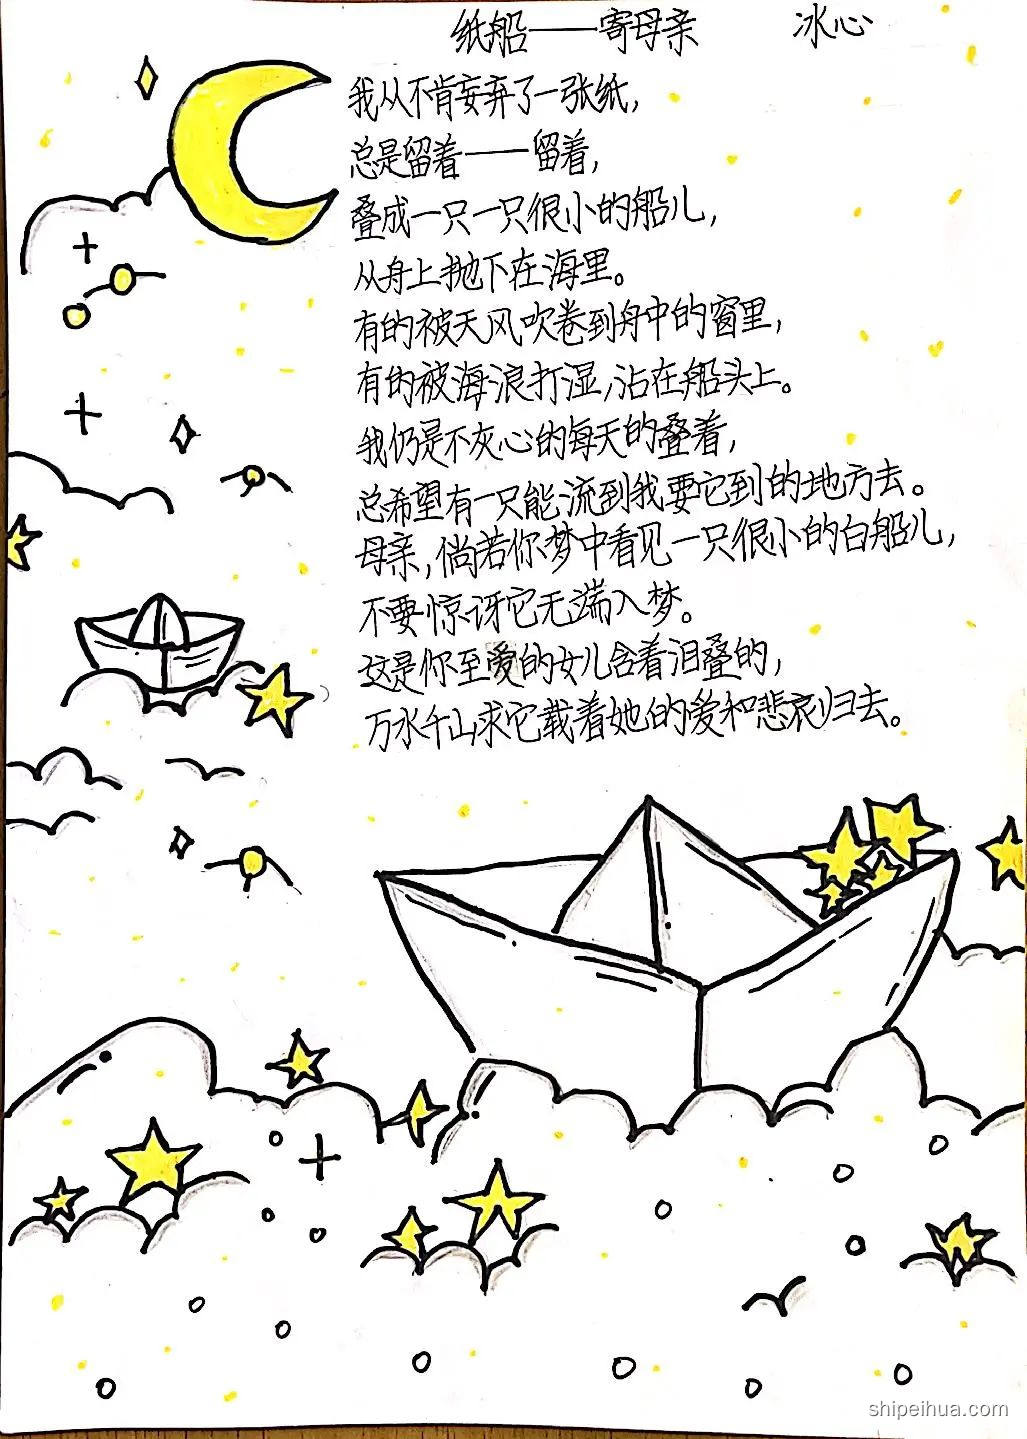 纸船——寄母亲 冰心
我从不肯妄弃了一张纸，
总是留着——留着，
叠成一只一只很小的船儿，
从舟上抛下在海里。
有的被天风吹卷到舟中的窗里，
有的被海浪打湿，沾在船头上。
我仍是不灰心的每天的叠着，
总希望有一只能流到我要它到的地方去。
母亲，倘若你梦中看见一只很小的白船儿，
不要惊讶它无端入梦。
这是你至爱的女儿含着泪叠的，
万水千山求它载着她的爱和悲哀归去。
shipeihua.com